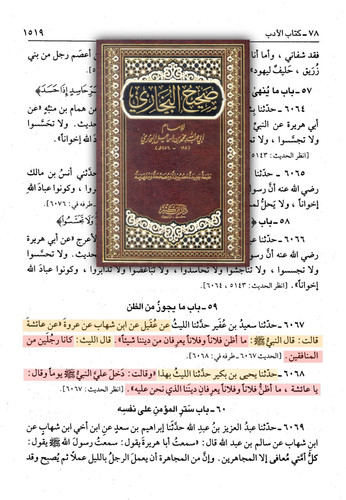 ٧٨ - كتاب الأدب
١٥١٩
فقد شفاني، وأما أنا
بن أعصم رجل من بني
زُرَيق، حَليفٌ ليهود»
٥٧ - باب ما يُنهى
حَاسِدٍ إِذَا حَسَدَ﴾
٦٠٦٤ - حدّثنا
عن همام بن منبِّه «عن
أبي هريرة عن النبيِّ
ولا تحسَّسوا
إخواناً».
[انظر الحديث: ٥١٤٣
٦٠٦٥ - حدّثنا
حدَّثني أنسُ بن مالك
رضي الله عنه أنَّ
وكونوا عبادَ اللَّهِ
إخواناً، ولا يَحلُّ لم
طرفه في: ٦٠٧٦].
٥٨ - باب ﴿
وَلَا تَجَسَّسُوا﴾
٦٠٦٦ - حدّثنا
الأعرج «عن أبي هريرة
رضي الله عنه أن
ولا تحسَّسوا
ولا تجسسوا، ولا تناجشوا ولا تحاسدوا، ولا تباغضوا ولا تدابروا، وكونوا عبادَ الله
إخواناً». [انظر الحديث: ٥١٤٣، ٦٠٦٤].
صحيح البخاري
للإمام
٥٩ - باب ما يجوزُ من الظن
٦٠٦٧ - حدّثنا سعيدُ بن عُفَير حدَّثنا الليثُ عن عُقَيل عن ابن شهاب عن عروةَ «عن عائشةَ
قالت: قال النبيُّ ﷺ: ما أظنُّ فلاناً وفلاناً يعرفان من ديننا شيئاً». قال الليث: كانا رجُلين من
المنافقين. [الحديث ٦٠٦٧ - طرفه في: ٦٠٦٨].
٦٠٦٨ - حدّثنا يحيى بن بكير حدَّثنا الليثُ بهذا «وقالت: دَخلَ عليَّ النبيُّ ﷺ يوماً وقال:
يا عائشة، ما أظنُّ فلاناً وفلاناً يَعرِفانِ دِينَنا الذي نحن عليه». [انظر الحديث: ٦٠٦٧].
٦٠ - باب سَترِ المؤمنِ على نفسِه
٦٠٦٩ - حدّثنا عبدُ العزيز بنُ عبدِ اللَّه حدَّثنا إبراهيم بن سعد عن ابن أخي ابن شهاب عن
ابن شهابٍ عن سالم بن عبد الله قال: «سمعتُ أبا هريرةَ يقول: سمعتُ رسولَ اللَّهِ ﷺ يقول:
كلُّ أمَّتي مُعافى إلا المجاهرين. وإنَّ من المجاهرة أن يعملَ الرجلُ بالليل عملاً ثم يُصبح وقد